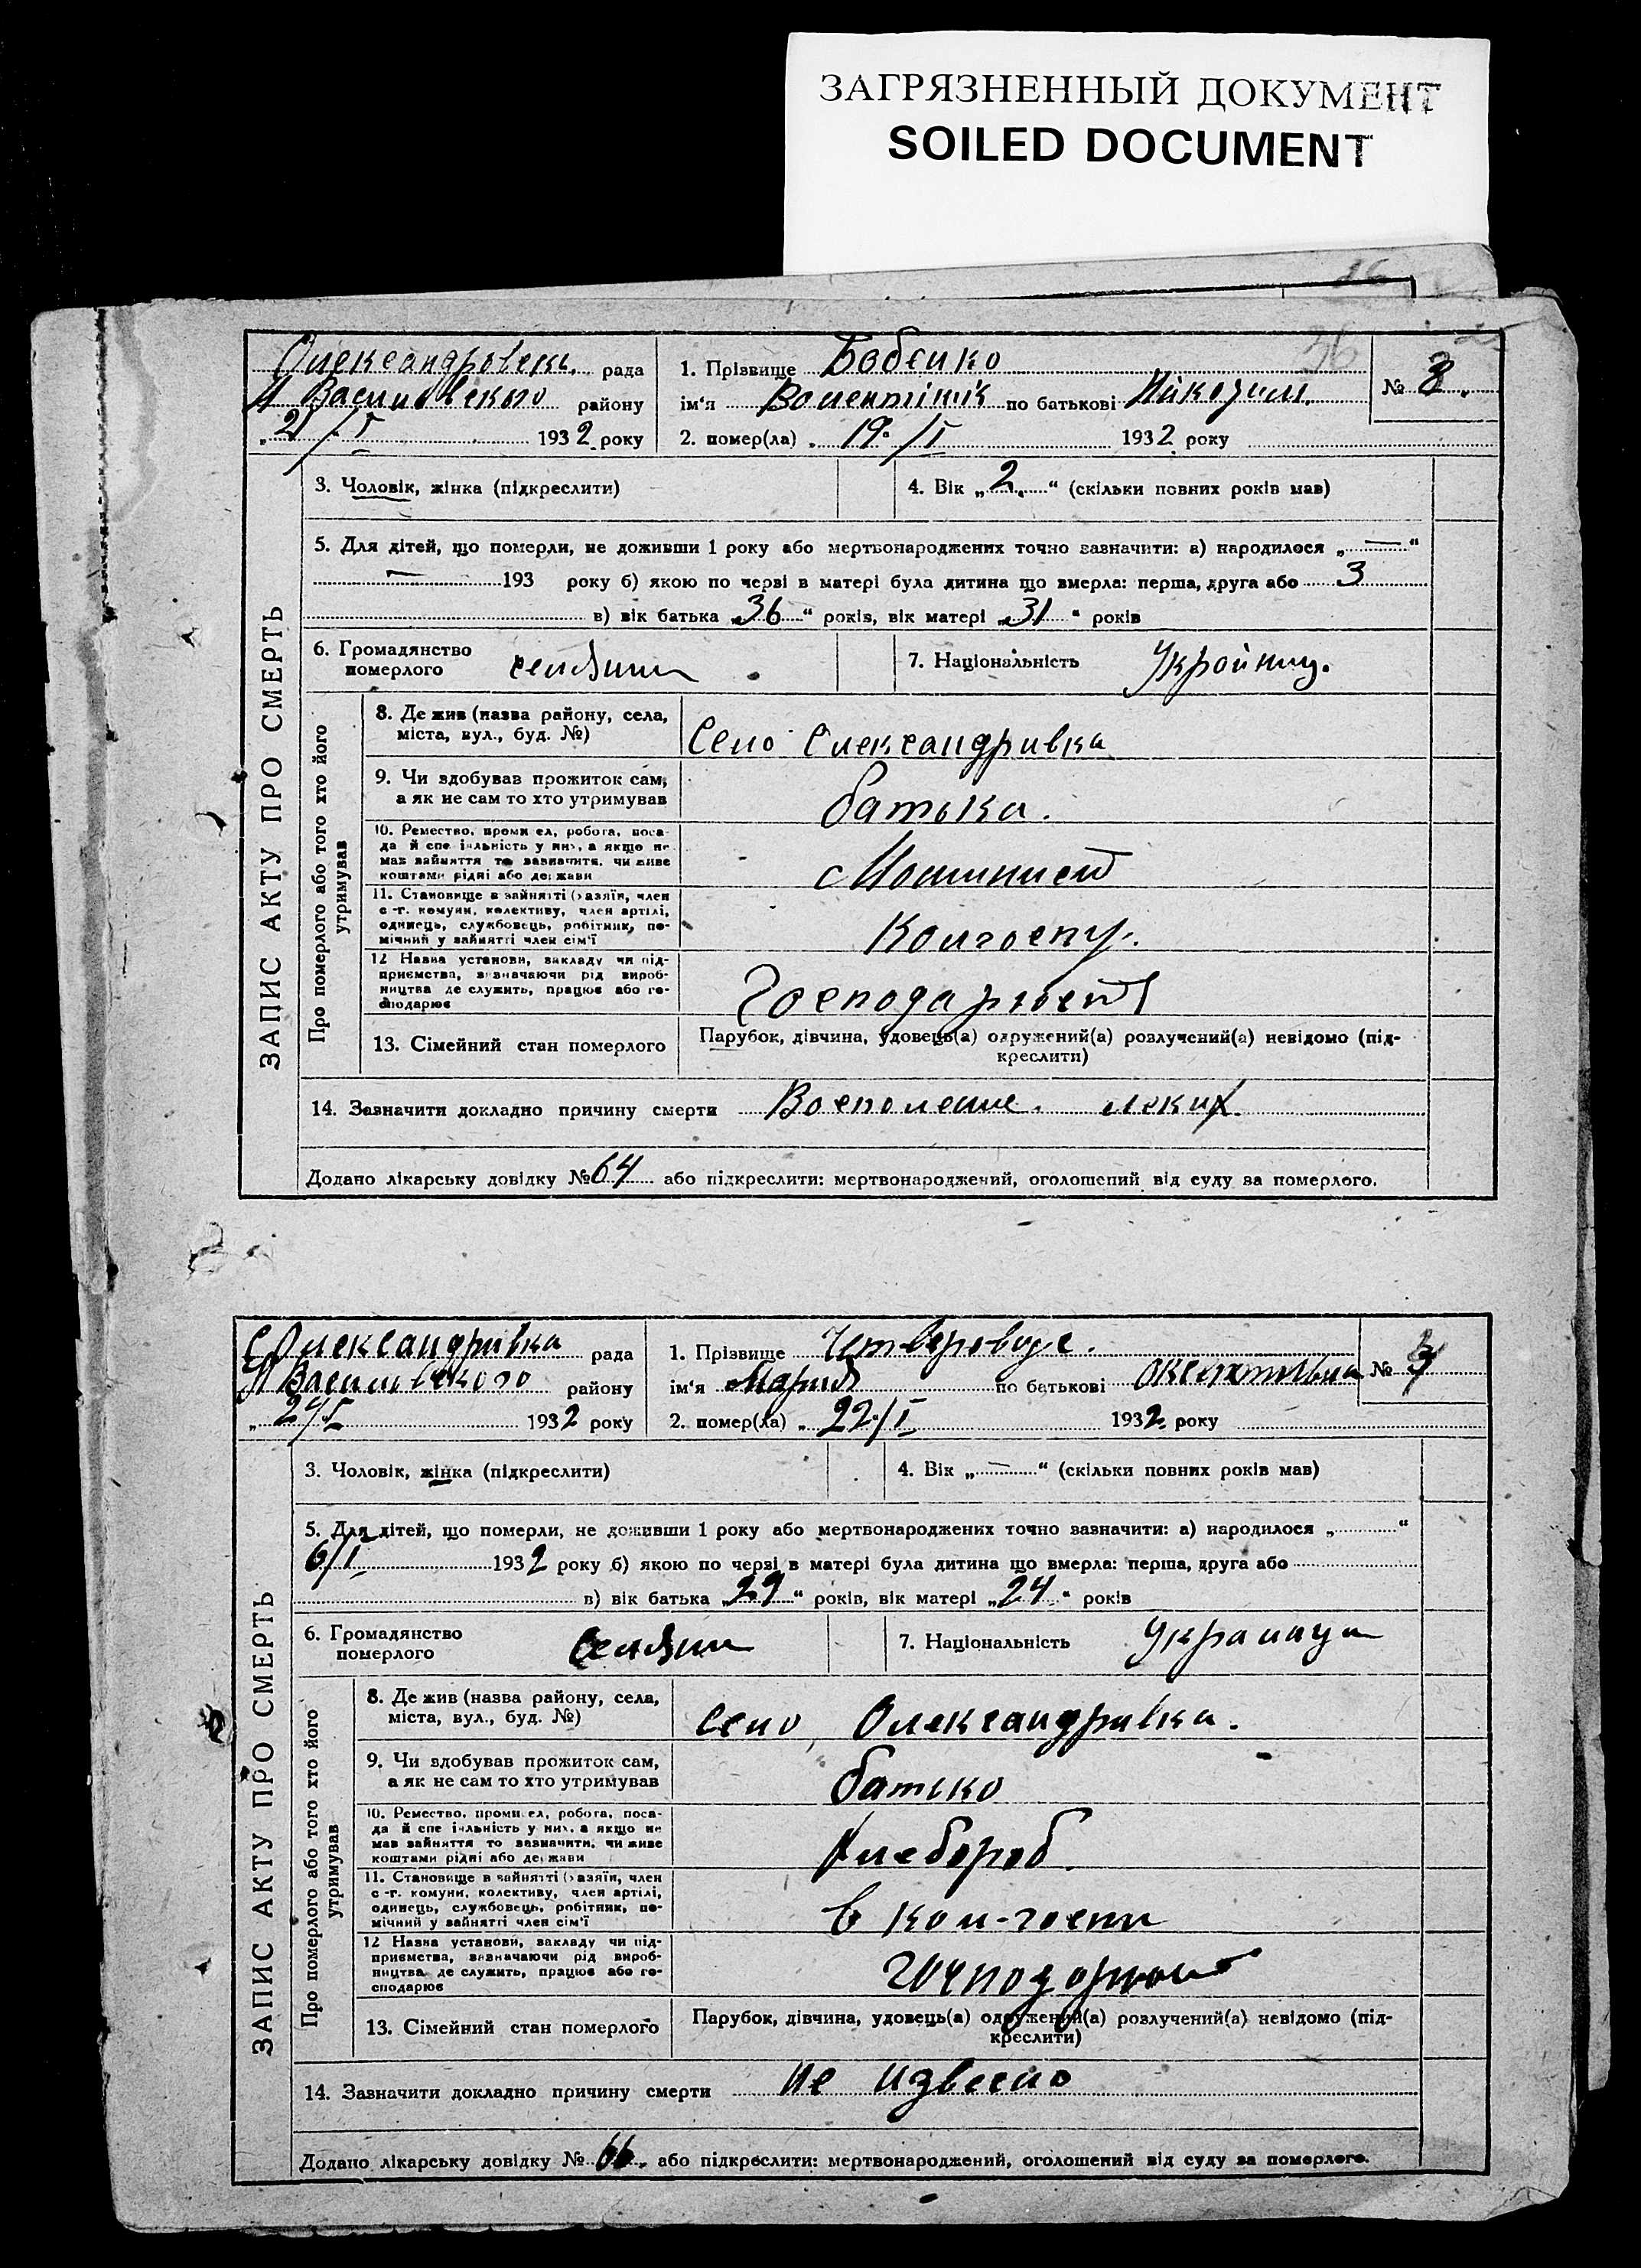 ЗАГРЯЗНЕННЫЙ ДОКУМЕНТ
SOILED DOCUMENT
16
36
Олександровськ. рада
району
21/I 1932 року
1. Прізвище Бабенко
ім'я по батькові Никодим.
№ 3.
2. помер(ла) „ 19/I 1932 року
3. Чоловік, жінка (підкреслити)
4. Вік „2“ (скільки повних років мав)
5. Для дітей, що померли, не доживши 1 року або мертвонароджених точно зазначити: а) народилося „—“
— 193 року б) якою по черзі в матері була дитина що вмерла: перша, друга або 3
в) вік батька „36“ років, вік матері „31“ років
6. Громадянство
померлого
7. Національність Україниц.
ЗАПИС АКТУ ПРО СМЕРТЬ
Про померлого або того хто його
утримував
8. Де жив (назва району, села,
міста, вул., буд. №)
Село Олександривка
9. Чи здобував прожиток сам,
а як не сам то хто утримував
батька.
10. Ремество, промисел, робота, поса-
да й спеціяльність у них, а якщо не
мав зайняття то зазначити, чи живе
коштами рідні або держави
Машинист
11. Становище в зайнятті (хазяїн, член
с.-г. комуни, колективу, член артілі,
одинець, службовець, робітник, по-
мічний у зайнятті член сім'ї
Колгоспу.
12 Назва установи, закладу чи під-
приємства, зазначаючи рід вироб-
ництва де служить, працює або го-
сподарює
13. Сімейний стан померлого
Парубок, дівчина, удовець(а) одружений(а) розлучений(а) невідомо (під-
креслити)
14. Зазначити докладно причину смерти Восполение. леких.
Додано лікарську довідку № 64 або підкреслити: мертвонароджений, оголошений від суду за померлого.
С Олександривка рада
району
1932 року
1. Прізвище
ім'я Мария по батькові
№
2. помер(ла) „ 22/I 1932 року
3. Чоловік, жінка (підкреслити)
4. Вік „—“ (скільки повних років мав)
5. Для дітей, що померли, не доживши 1 року або мертвонароджених точно зазначити: а) народилося „ “
6/I 1932 року б) якою по черзі в матері була дитина що вмерла: перша, друга або
в) вік батька „29“ років, вік матері „24“ років
6. Громадянство
померлого
7. Національність
ЗАПИС АКТУ ПРО СМЕРТЬ
Про померлого або того хто його
утримував
8. Де жив (назва району, села,
міста, вул., буд. №)
Село, Олександривка.
9. Чи здобував прожиток сам,
а як не сам то хто утримував
батько
10. Ремество, промисел, робота, поса-
да й спеціяльність у них, а якщо не
мав зайняття то зазначити, чи живе
коштами рідні або держави
Хлебороб
11. Становище в зайнятті (хазяїн, член
с.-г. комуни, колективу, член артілі,
одинець, службовець, робітник, по-
мічний у зайнятті член сім'ї
в кол-госпи
12 Назва установи, закладу чи під-
приємства, зазначаючи рід вироб-
ництва де служить, працює або го-
сподарює
13. Сімейний стан померлого
Парубок, дівчина, удовець(а) одружений(а) розлучений(а) невідомо (під-
креслити)
14. Зазначити докладно причину смерти не извесно
Додано лікарську довідку № 66. або підкреслити: мертвонароджений, оголошений від суду за померлого.